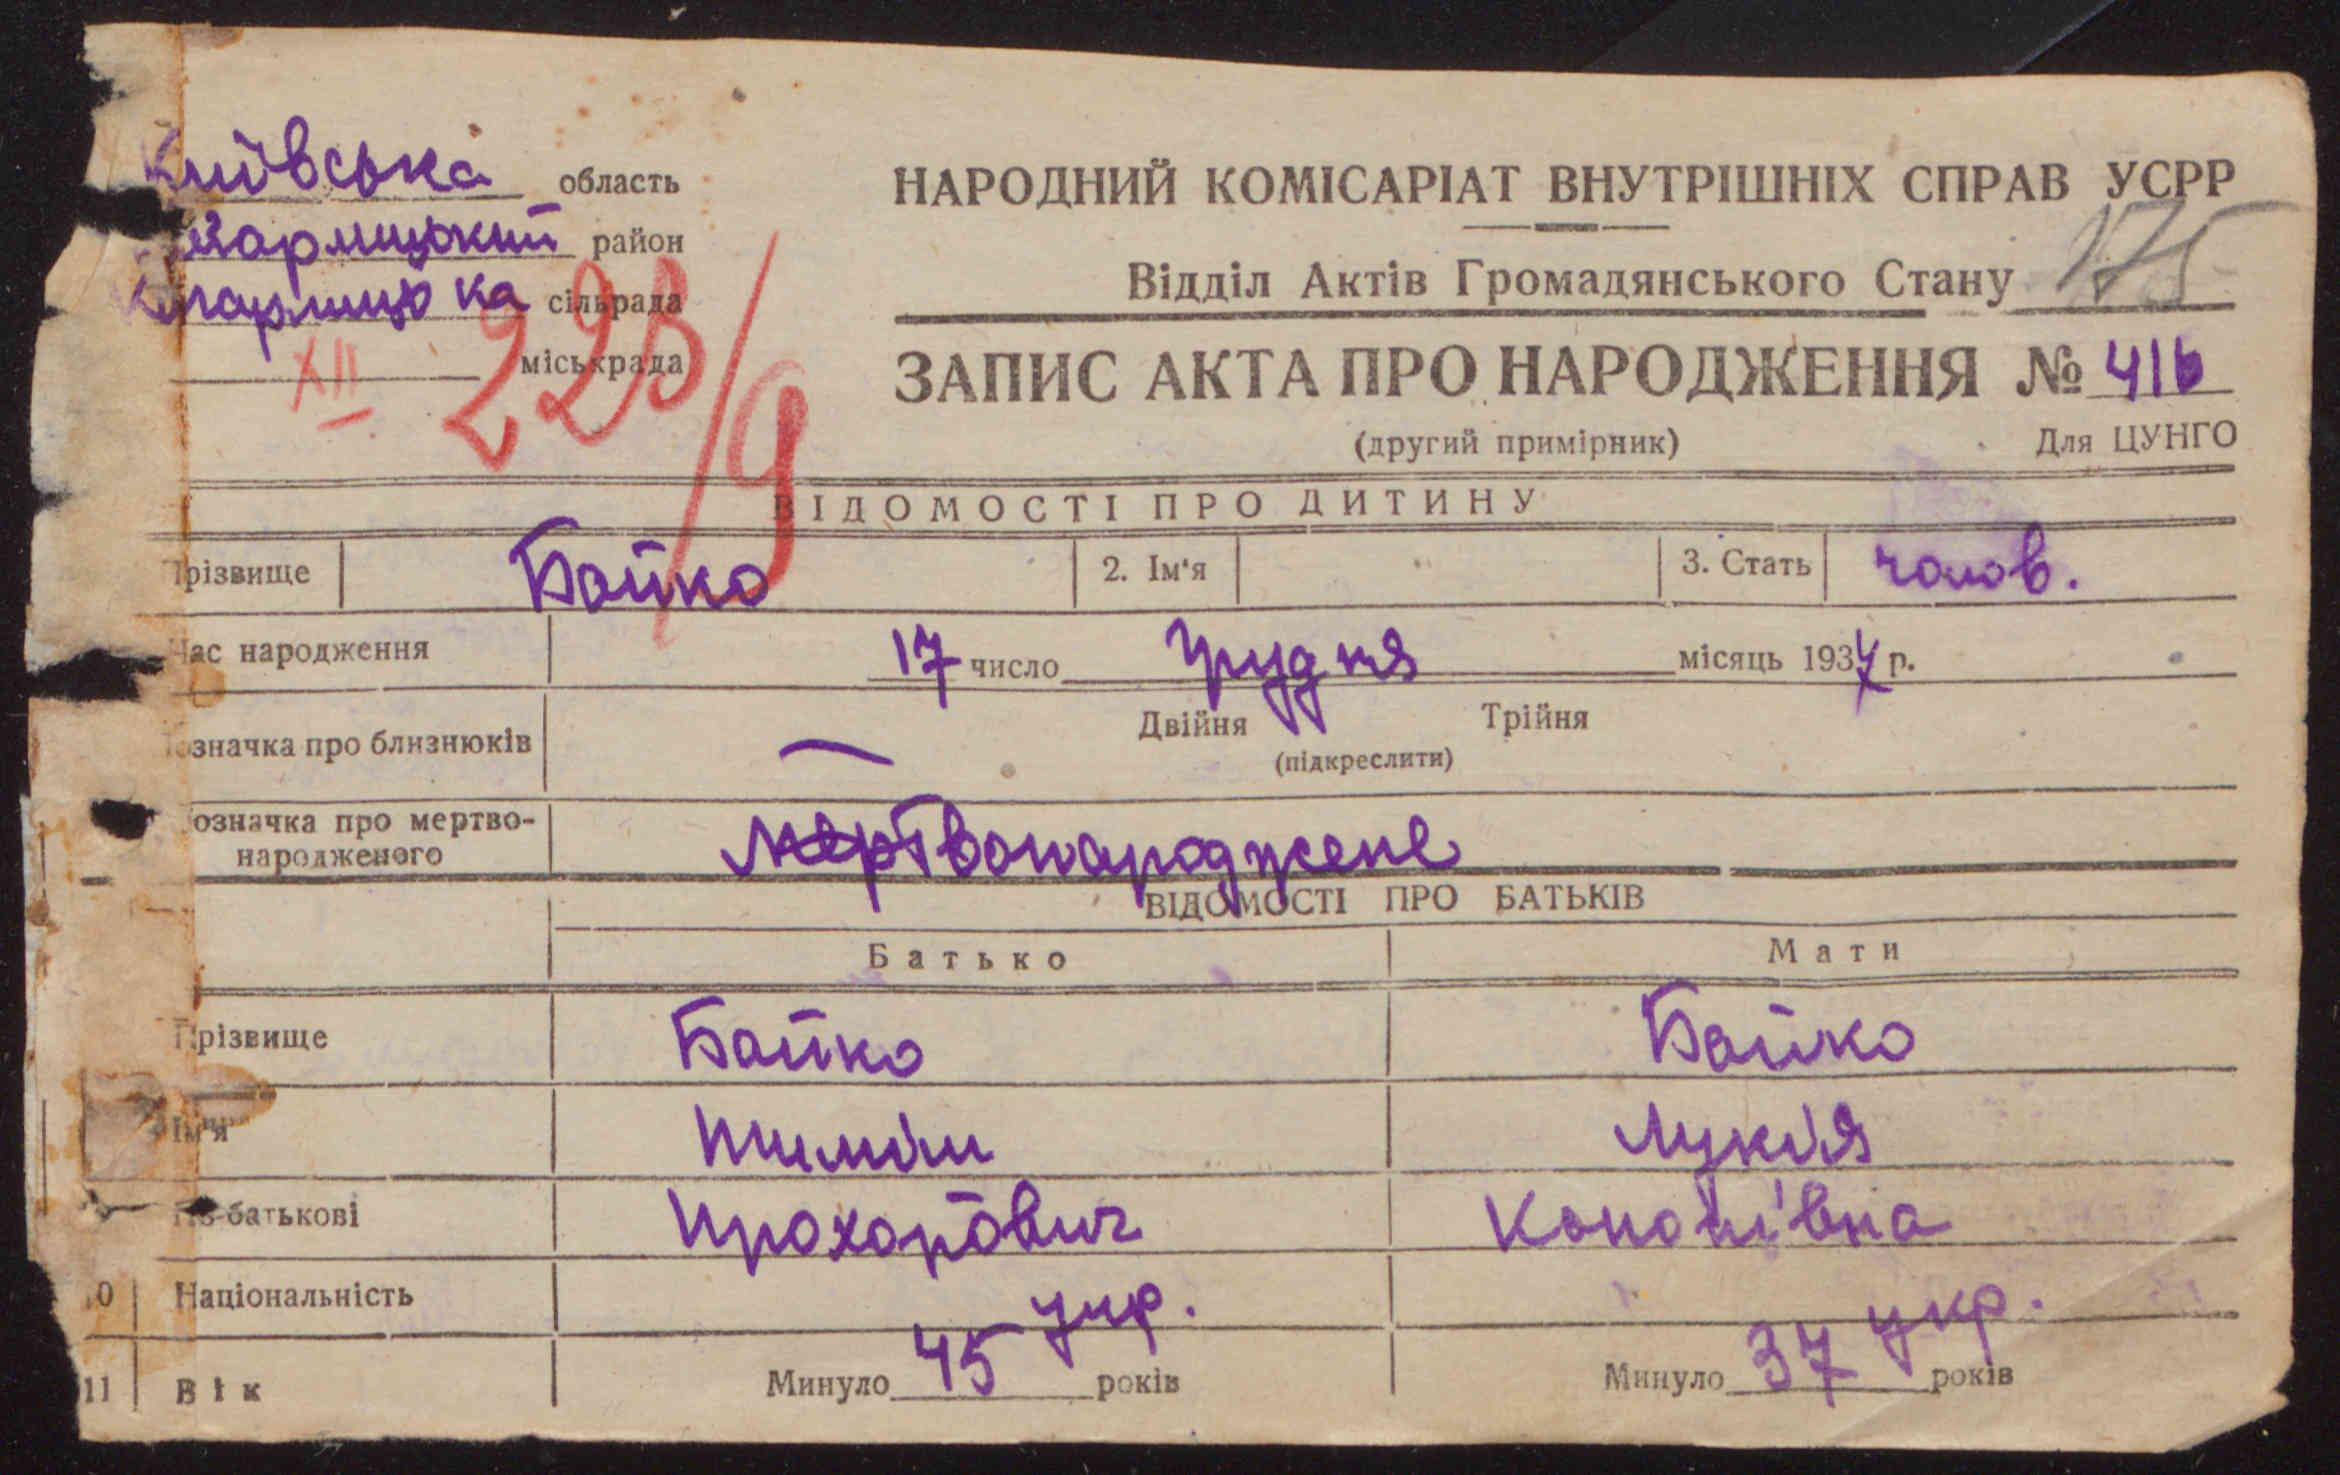 Київська область
Кагарлицький район
Кагарлицька сільрада
міськрада
XII
223/9
НАРОДНИЙ КОМІСАРІАТ ВНУТРІШНІХ СПРАВ УСРР
Відділ Актів Громадянського Стану 175
ЗАПИС АКТА ПРО НАРОДЖЕННЯ № 416
(другий примірник) Для ЦУНГО
ВІДОМОСТІ ПРО ДИТИНУ
Прізвище Бойко 2. Ім'я 3. Стать чолов.
Час народження 17 число Грудня місяць 1937 р.
Позначка про близнюків Двійня Трійня
(підкреслити)
Позначка про мертво-
народженого Мертвонароджене
ВІДОМОСТІ ПРО БАТЬКІВ
Батько Мати
Прізвище Бойко Бойко
Ім'я Лукія
По-батькові Прохорович Кононівна
10 Національність укр. укр.
11 Вік Минуло 45 років Минуло 37 років